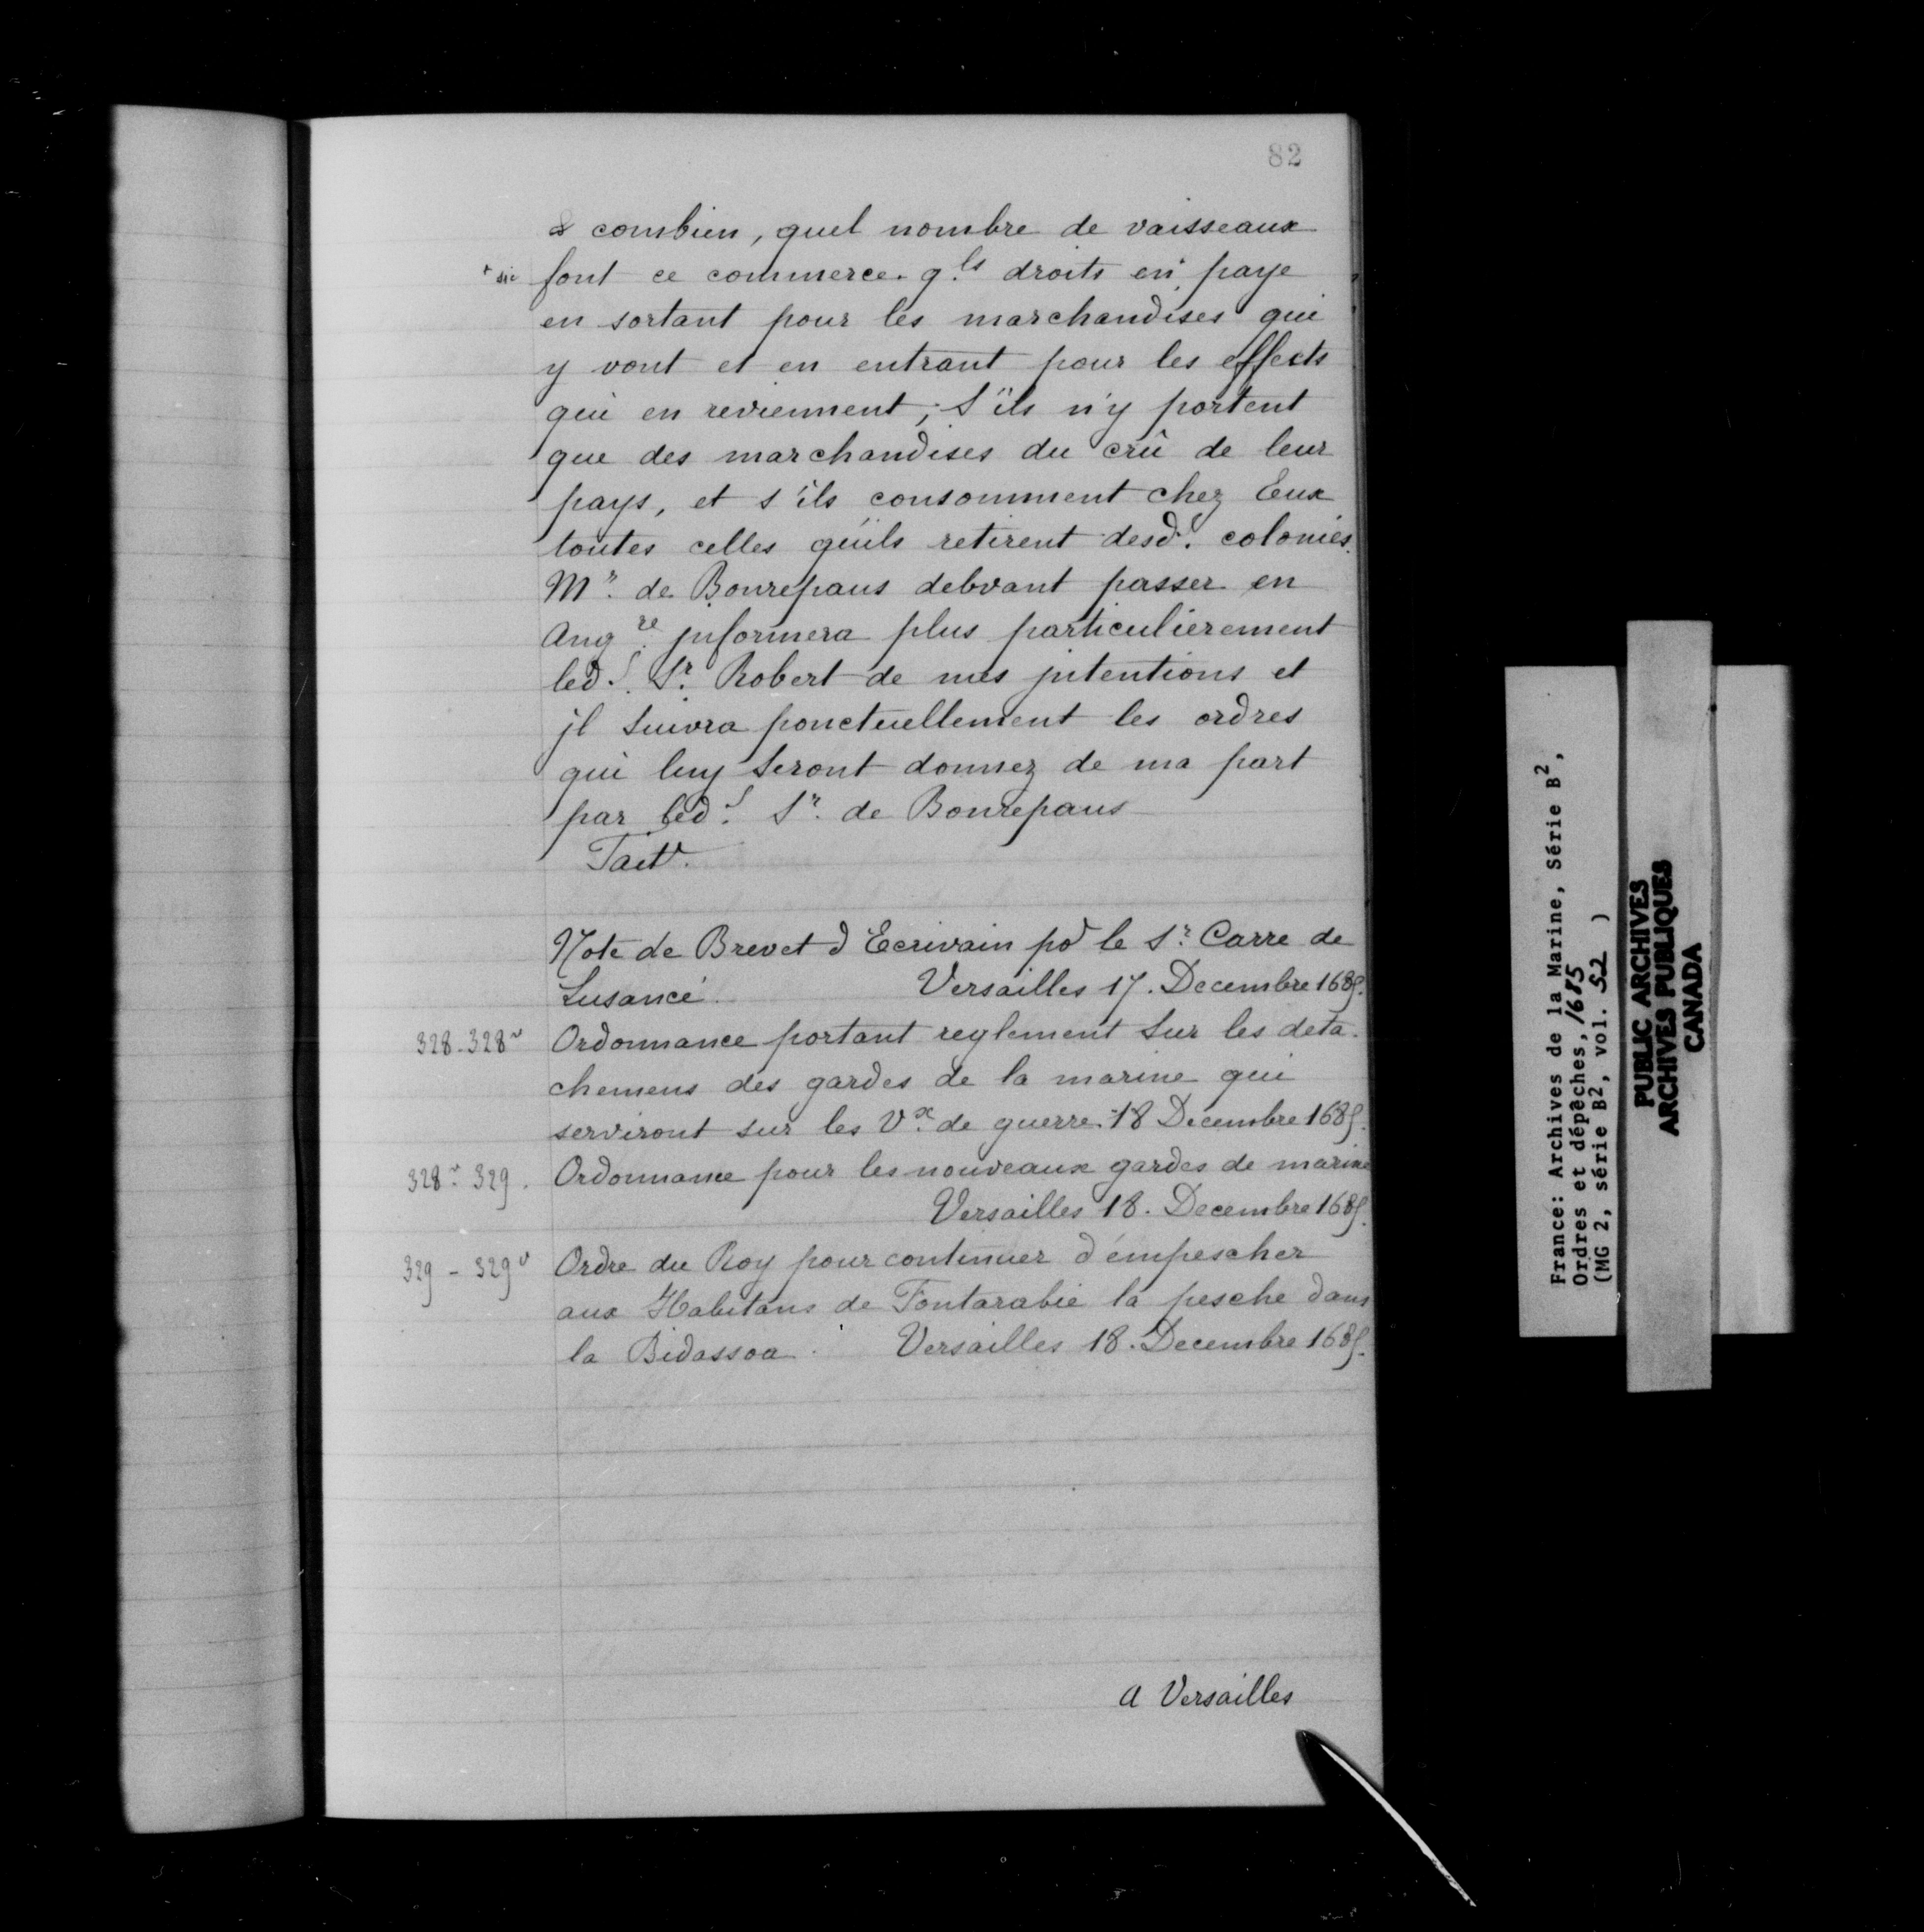 82
& combien, quel nombre de vaisseaux
+ sic font ce commerce. q.ls droits en paye
en sortant pour les marchandises qui
y vont et en entrant pour les effects
qui en reviennent, S'ils n'y portent
que des marchandises du crû de leur
pays, et s'ils consomment chez Eux
toutes celles qu'ils retirent desd.s colonies.
Mr. de Bonrepaus debvant passer en
Ang.re jnformera plus particulierement
led.s Sr. Robert de mes jntentions et
jl suivra ponctuellement les ordres
qui luy Seront donnez de ma part
par led.s Sr. de Bonrepaus
Note de Brevet d'Ecrivain po le Sr. Carre de
Lusancé. Versailles 17. Decembre 1685.
328-328v Ordonnance portant reglement Sur les deta-
chemens des gardes de la marine qui
serviront sur les V.x de guerre. 18 Decembre 1685.
328v 329. Ordonnance pour les nouveaux gardes de marine
Versailles 18. Decembre 1685.
329 - 329v Ordre du Roy pour continuer d'empescher
aux Habitans de Fontarabie la pesche dans
la Bidassoa. Versailles 18. Decembre 1685.
a Versailles
France: Archives de la Marine, Série B2,
Ordres et dépêches, 1685
(MG 2, série B2, vol. 52 )
PUBLIC ARCHIVES
ARCHIVES PUBLIQUES
CANADA